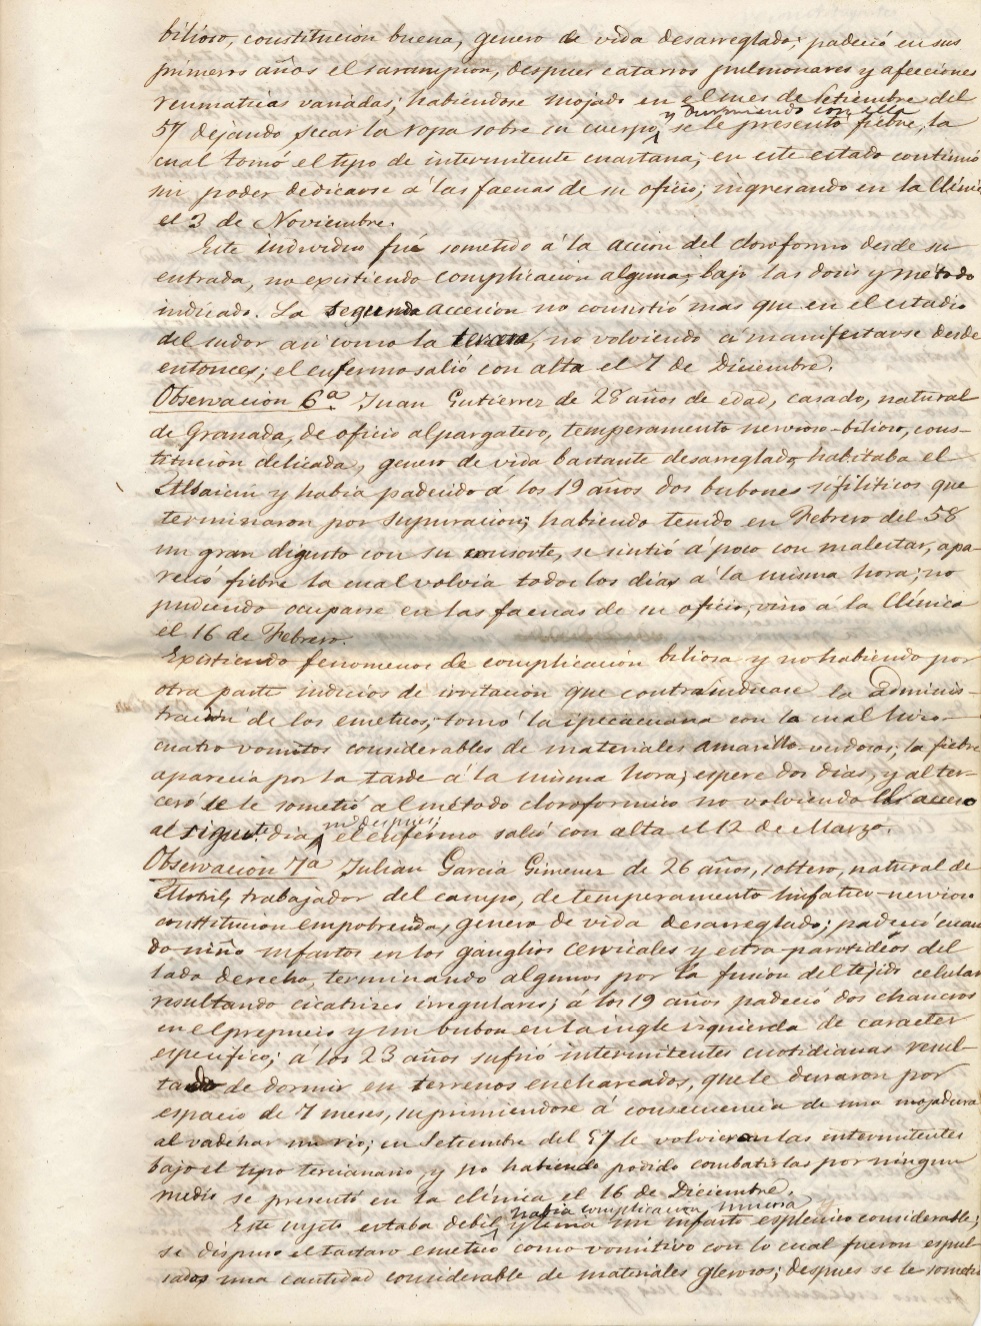 bilioso, constitucion buena, genero de vida desarreglado; padeció en sus
primeros años el sarampion, despues catarros pulmonares y afecciones
reumaticas variadas; habiendose mojado en el mes de Setiembre del
y durmiendo con ella
57 dejando secar la ropa sobre su cuerpo, se le presentó fiebre, la
cual tomó el tipo de intermitente cuartana; en este estado continuó
sin poder dedicarse á las faenas de su oficio; ingresando en la Clínica
el 3 de Noviembre.
Este individuo fué sometido á la accion del cloroformo desde su
entrada, no existiendo complicacion alguna, bajo las dosis y metodo
indicado. La segunda accesion no consistió mas que en el estadio
del sudor asi como la tercera, no volviendo á manifestarse desde
entonces; el enfermo salió con alta el 7 de Diciembre.
Observacion 6ª Juan Gutierrez de 28 años de edad, casado, natural
de Granada, de oficio alpargatero, temperamento nervioso-bilioso, cons-
titucion delicada, genero de vida bastante desarreglado, habitaba el
Albaicin y habia padecido á los 19 años dos bubones sifiliticos que
terminaron por supuracion; habiendo tenido en Febrero del 58
un gran disgusto con su consorte, se sintió á poco con malestar, apa-
reció fiebre la cual volvia todos los dias á la misma hora; no
pudiendo ocuparse en las faenas de su oficio, vino á la Clínica
el 16 de Febrero.
Existiendo fenomenos de complicacion biliosa y no habiendo por
otra parte indicios de irritacion que contraindicase la adminis-
tracion de los emeticos, tomó la ipecacuana con la cual hizo
cuatro vomitos considerables de materiales amarillo-verdosos; la fiebre
aparecia por la tarde á la misma hora; esperé dos dias, y al ter-
cero se le sometió al método cloroformico no volviendo el acceso
ni despues;
al sigute dia el enfermo salió con alta el 12 de Marzo.
Observacion 7ª Julian Garcia Gimenez de 26 años, soltero, natural de
Motril, trabajador del campo, de temperamento linfatico-nervioso
constitucion empobrecida, genero de vida desarreglado; padeció cuan
do niño infartos en los ganglios cervicales y extra-parotidios del
lado derecho, terminando algunos por la fusion del tejido celular
resultando cicatrices irregulares; á los 19 años padeció dos chancros
en el prepucio y un bubon en la ingle izquierda de caracter
especifico; á los 23 años sufrió intermitentes cuotidianas resul-
tado de dormir en terrenos encharcados, que le duraron por
espacio de 7 meses, suprimiendose á consecuencia de una mojadura
al vadear un rio; en Setiembre del 57 le volvieron las intermitentes
bajo el tipo tercianario, y no habiendo podido combatirlas por ningun
medio se presentó en la clínica el 16 de Diciembre.
habia complicacion mucosa
Este sujeto estaba debil y tenia un infarto esplenico considerable;
se dispuso el tartaro emetico como vomitivo con lo cual fueron espul-
sados una cantidad considerable de materiales glerosos; despues se le sometió